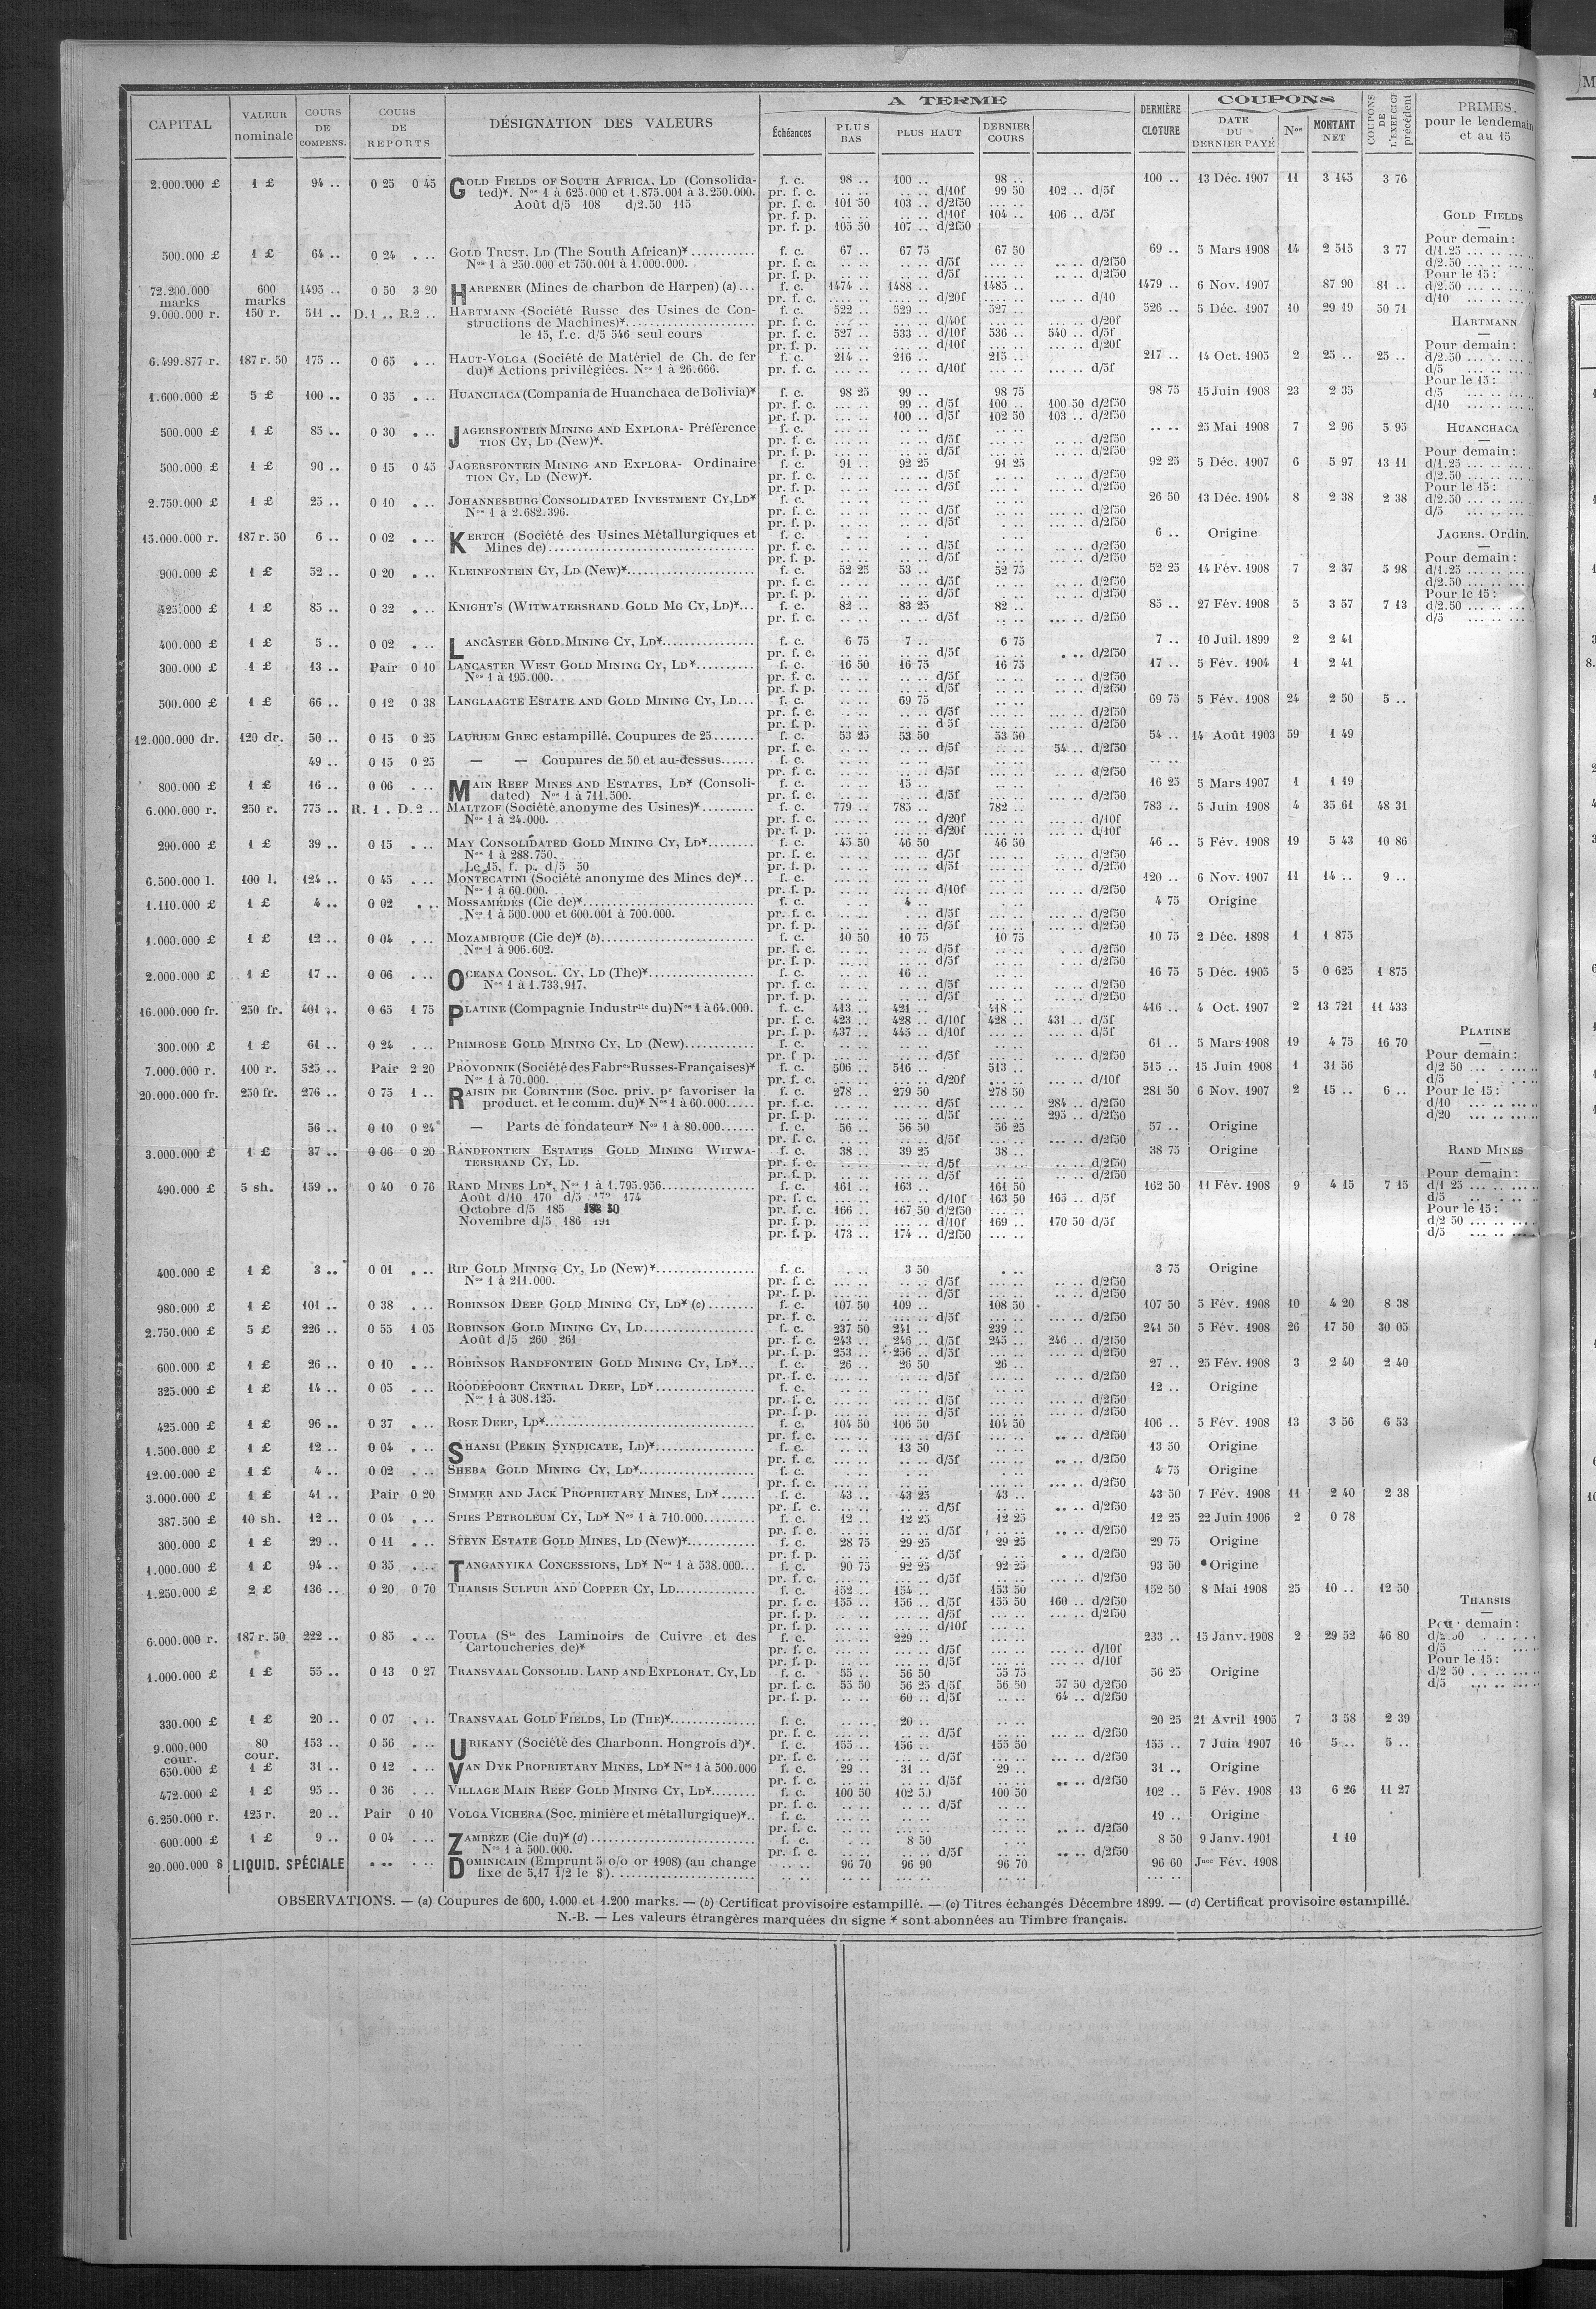 CAPITAL | VALEUR nominale | COURS DE COMPENS. | COURS DE REPORTS | DÉSIGNATION DES VALEURS | A TERME | Échéances | PLUS BAS | PLUS HAUT | DERNIER COURS | DERNIÈRE CLOTURE | COUPONS | DATE DU DERNIER PAYÉ | Nos | MONTANT NET | COUPONS DE L'EXERCICE précédent | PRIMES. pour le lendemain et au 15
2.000.000 £ 1 £ 94 .. 0 25 0 45 GOLD FIELDS OF SOUTH AFRICA, LD (Consolida- f. c. 98 .. 100 .. 98 .. 100 .. 13 Déc. 1907 11 3 145 3 76
ted)*. Nos 1 à 625.000 et 1.875.001 à 3.250.000. pr. f. c. .. .. .. .. d/10f 99 50 102 .. d/5f
Août d/5 108 d/2.50 115 pr. f. c. 101 50 103 .. d/2f50 .. ..
pr. f. p. .. .. .. .. d/10f 104 .. 106 .. d/5f
pr. f. p. 105 50 107 .. d/2f50
500.000 £ 1 £ 64 .. 0 24 . .. GOLD TRUST, LD (The South African)* f. c. 67 .. 67 75 67 50 69 .. 5 Mars 1908 14 2 515 3 77
Nos 1 à 250.000 et 750.001 à 1.000.000.
72.200.000 marks 600 marks 1495 .. 0 50 3 20 HARPENER (Mines de charbon de Harpen) (a)... f. c. 1474 .. 1488 .. 1485 .. 1479 .. 6 Nov. 1907 87 90 81 ..
9.000.000 r. 150 r. 511 .. D.1 .. R.2 .. HARTMANN (Société Russe des Usines de Con- f. c. 522 .. 529 .. 527 .. 526 .. 5 Déc. 1907 10 29 19 50 71
structions de Machines)*
le 15, f.c. d/5 546 seul cours pr. f. c. 527 .. 533 .. d/10f 536 .. 540 .. d/5f
6.499.877 r. 187 r. 50 175 .. 0 65 . .. HAUT-VOLGA (Société de Matériel de Ch. de fer f. c. 214 .. 216 .. 215 .. 217 .. 14 Oct. 1905 2 25 .. 25 ..
du)* Actions privilégiées. Nos 1 à 26.666. pr. f. c. d/10f d/5f
1.600.000 £ 5 £ 100 .. 0 35 . .. HUANCHACA (Compania de Huanchaca de Bolivia)* f. c. 98 25 99 .. 98 75 98 75 15 Juin 1908 23 2 35
pr. f. c. .. .. 99 .. d/5f 100 .. 100 50 d/2f50
pr. f. p. .. .. 100 .. d/5f 102 50 103 .. d/2f50
500.000 £ 1 £ 85 .. 0 30 . .. JAGERSFONTEIN MINING AND EXPLORA- Préférence f. c. .. .. 25 Mai 1908 7 2 96 5 95
TION CY, LD (New)*.
500.000 £ 1 £ 90 .. 0 15 0 45 JAGERSFONTEIN MINING AND EXPLORA- Ordinaire f. c. 91 .. 92 25 91 25 92 25 5 Déc. 1907 6 5 97 13 11
TION CY, LD (New)*.
2.750.000 £ 1 £ 25 .. 0 10 . .. JOHANNESBURG CONSOLIDATED INVESTMENT CY, LD* f. c. 26 50 13 Déc. 1904 8 2 38 2 38
Nos 1 à 2.682.396.
15.000.000 r. 187 r. 50 6 .. 0 02 . .. KERTCH (Société des Usines Métallurgiques et f. c. 6 .. Origine
Mines de)
900.000 £ 1 £ 52 .. 0 20 . .. KLEINFONTEIN CY, LD (New)* f. c. 52 25 53 .. 52 75 52 25 14 Fév. 1908 7 2 37 5 98
425.000 £ 1 £ 85 .. 0 32 . .. KNIGHT'S (WITWATERSRAND GOLD MG CY, LD)*... f. c. 82 .. 83 25 82 .. 85 .. 27 Fév. 1908 5 3 57 7 13
400.000 £ 1 £ 5 .. 0 02 . .. LANCASTER GOLD MINING CY, LD* f. c. 6 75 7 .. 6 75 7 .. 10 Juil. 1899 2 2 41
300.000 £ 1 £ 13 .. Pair 0 10 LANCASTER WEST GOLD MINING CY, LD* f. c. 16 50 16 75 16 75 17 .. 5 Fév. 1904 1 2 41
Nos 1 à 195.000.
500.000 £ 1 £ 66 .. 0 12 0 38 LANGLAAGTE ESTATE AND GOLD MINING CY, LD... f. c. .. .. 69 75 .. .. 69 75 5 Fév. 1908 24 2 50 5 ..
12.000.000 dr. 120 dr. 50 .. 0 15 0 25 LAURIUM GREC estampillé. Coupures de 25 f. c. 53 25 53 50 53 50 54 .. 14 Août 1903 59 1 49
pr. f. c. d/5f 54 .. d/2f50
49 .. 0 15 0 25 — — Coupures de 50 et au-dessus f. c.
800.000 £ 1 £ 16 .. 0 06 . .. MAIN REEF MINES AND ESTATES, LD* (Consoli- f. c. .. .. 15 .. .. .. 16 25 5 Mars 1907 1 1 19
dated) Nos 1 à 711.500.
6.000.000 r. 250 r. 775 .. R. 1 . D.2 .. MALTZOF (Société anonyme des Usines)* f. c. 779 .. 785 .. 782 .. 783 .. 5 Juin 1908 4 35 61 48 31
Nos 1 à 24.000.
290.000 £ 1 £ 39 .. 0 15 . .. MAY CONSOLIDATED GOLD MINING CY, LD* f. c. 45 50 46 50 46 50 46 .. 5 Fév. 1908 19 5 43 10 86
Nos 1 à 288.750.
Le 15, f. p. d/5 50
6.500.000 l. 100 l. 124 .. 0 45 . .. MONTECATINI (Société anonyme des Mines de)* 120 .. 6 Nov. 1907 11 14 .. 9 ..
Nos 1 à 60.000.
1.110.000 £ 1 £ 4 .. 0 02 . .. MOSSAMÉDÈS (Cie de)* f. c. .. .. 4 .. 4 75 Origine
Nos 1 à 500.000 et 600.001 à 700.000.
1.000.000 £ 1 £ 12 .. 0 04 . .. MOZAMBIQUE (Cie de)* (b) f. c. 10 50 10 75 10 75 10 75 2 Déc. 1898 1 1 875
Nos 1 à 906.602.
2.000.000 £ 1 £ 17 .. 0 06 . .. OCEANA CONSOL. CY, LD (The)* f. c. .. .. 16 .. .. .. 16 75 5 Déc. 1905 5 0 625 1 875
Nos 1 à 1.733.917.
16.000.000 fr. 250 fr. 401 .. 0 65 1 75 PLATINE (Compagnie Industrielle du) Nos 1 à 64.000. f. c. 413 .. 421 .. 418 .. 416 .. 4 Oct. 1907 2 13 721 11 433
pr. f. c. 423 .. 428 .. d/10f 428 .. 431 .. d/5f
pr. f. p. 437 .. 445 .. d/10f .. .. d/5f
300.000 £ 1 £ 61 .. 0 24 . .. PRIMROSE GOLD MINING CY, LD (New) f. c. 61 .. 5 Mars 1908 19 4 75 16 70
7.000.000 r. 100 r. 525 .. Pair 2 20 PROVODNIK (Société des Fabres Russes-Françaises)* f. c. 506 .. 516 .. 513 .. 515 .. 15 Juin 1908 1 31 56
Nos 1 à 70.000. pr. f. c. d/20f d/10f
20.000.000 fr. 250 fr. 276 .. 0 75 1 .. RAISIN DE CORINTHE (Soc. priv. pr favoriser la f. c. 278 .. 279 50 278 50 281 50 6 Nov. 1907 2 15 .. 6 ..
product. et le comm. du)* Nos 1 à 60.000 pr. f. c. d/5f 284 .. d/2f50
pr. f. p. d/5f 295 .. d/2f50
56 .. 0 10 0 24 — Parts de fondateur* Nos 1 à 80.000 f. c. 56 .. 56 50 56 25 57 .. Origine
3.000.000 £ 1 £ 37 .. 0 06 0 20 RANDFONTEIN ESTATES GOLD MINING WITWA- f. c. 38 .. 39 25 38 .. 38 75 Origine
TERSRAND CY, LD.
490.000 £ 5 sh. 159 .. 0 40 0 76 RAND MINES LD*, Nos 1 à 1.795.956 f. c. 161 .. 163 .. 161 50 162 50 11 Fév. 1908 9 4 15 7 15
Août d/10 170 d/5 174 pr. f. c. .. .. .. .. d/10f 163 50 165 .. d/5f
Octobre d/5 185 pr. f. c. 166 .. 167 50 d/2f50
Novembre d/5 186 191 pr. f. p. .. .. .. .. d/10f 169 .. 170 50 d/5f
pr. f. p. 173 .. 174 .. d/2f50
400.000 £ 1 £ 3 .. 0 01 . .. RIP GOLD MINING CY, LD (New)* f. c. . .. 3 50 . .. 3 75 Origine
Nos 1 à 211.000.
980.000 £ 1 £ 101 .. 0 38 . .. ROBINSON DEEP GOLD MINING CY, LD* (c) f. c. 107 50 109 .. 108 50 107 50 5 Fév. 1908 10 4 20 8 38
2.750.000 £ 5 £ 226 .. 0 55 1 05 ROBINSON GOLD MINING CY, LD f. c. 237 50 241 .. 239 .. 241 50 5 Fév. 1908 26 17 50 30 05
Août d/5 260 261 pr. f. c. 243 .. 246 .. d/5f 245 .. 246 .. d/2f50
pr. f. p. 253 .. 256 .. d/5f .. .. d/2f50
600.000 £ 1 £ 26 .. 0 10 . .. ROBINSON RANDFONTEIN GOLD MINING CY, LD*... f. c. 26 .. 26 50 26 .. 27 .. 25 Fév. 1908 3 2 40 2 40
325.000 £ 1 £ 14 .. 0 05 . .. ROODEPOORT CENTRAL DEEP, LD* f. c. 12 .. Origine
Nos 1 à 308.125.
425.000 £ 1 £ 96 .. 0 37 . .. ROSE DEEP, LD* f. c. 104 50 106 50 104 50 106 .. 5 Fév. 1908 13 3 56 6 53
1.500.000 £ 1 £ 12 .. 0 04 . .. SHANSI (PEKIN SYNDICATE, LD)* f. c. .. .. 13 50 .. .. 13 50 Origine
12.00.000 £ 1 £ 4 .. 0 02 . .. SHEBA GOLD MINING CY, LD* f. c. 4 75 Origine
3.000.000 £ 1 £ 41 .. Pair 0 20 SIMMER AND JACK PROPRIETARY MINES, LD* f. c. 43 .. 43 25 43 .. 43 50 7 Fév. 1908 11 2 40 2 38
387.500 £ 10 sh. 12 .. 0 04 . .. SPIES PETROLEUM CY, LD* Nos 1 à 710.000 f. c. 12 .. 12 25 12 25 12 25 22 Juin 1906 2 0 78
300.000 £ 1 £ 29 .. 0 11 . .. STEYN ESTATE GOLD MINES, LD (New)* f. c. 28 75 29 25 29 25 29 75 Origine
1.000.000 £ 1 £ 94 .. 0 35 . .. TANGANYIKA CONCESSIONS, LD* Nos 1 à 538.000... f. c. 90 75 92 25 92 25 93 50 Origine
1.250.000 £ 2 £ 136 .. 0 20 0 70 THARSIS SULFUR AND COPPER CY, LD f. c. 152 .. 154 .. 153 50 152 50 8 Mai 1908 25 10 .. 12 50
pr. f. c. 155 .. 156 .. d/5f 155 50 160 .. d/2f50
6.000.000 r. 187 r. 50 222 .. 0 85 . .. TOULA (Sté des Laminoirs de Cuivre et des f. c. 229 .. 233 .. 15 Janv. 1908 2 29 52 46 80
Cartoucheries de)*
1.000.000 £ 1 £ 55 .. 0 13 0 27 TRANSVAAL CONSOLID. LAND AND EXPLORAT. CY, LD f. c. 55 .. 56 50 55 75 56 25 Origine
pr. f. c. 55 50 56 25 d/5f 56 50 57 50 d/2f50
pr. f. p. .. .. 60 .. d/5f .. .. 64 .. d/2f50
330.000 £ 1 £ 20 .. 0 07 . .. TRANSVAAL GOLD FIELDS, LD (THE)* f. c. .. .. 20 .. .. .. 20 25 21 Avril 1905 7 3 58 2 39
9.000.000 cour. 80 cour. 153 .. 0 56 . .. URIKANY (Société des Charbonn. Hongrois d')*. f. c. 155 .. 156 .. 155 50 155 .. 7 Juin 1907 16 5 .. 5 ..
650.000 £ 1 £ 31 .. 0 12 . .. VAN DYK PROPRIETARY MINES, LD* Nos 1 à 500.000 f. c. 29 .. 31 .. 29 .. 31 .. Origine
472.000 £ 1 £ 95 .. 0 36 . .. VILLAGE MAIN REEF GOLD MINING CY, LD* f. c. 100 50 102 50 100 50 102 .. 5 Fév. 1908 13 6 26 11 27
6.250.000 r. 125 r. 20 .. Pair 0 10 VOLGA VICHERA (Soc. minière et métallurgique)*.. f. c. 19 .. Origine
600.000 £ 1 £ 9 .. 0 04 . .. ZAMBÈZE (Cie du)* (d) f. c. . .. 8 50 . .. 8 50 9 Janv. 1901 1 10
Nos 1 à 500.000.
20.000.000 $ LIQUID. SPÉCIALE DOMINICAIN (Emprunt 5 o/o or 1908) (au change 96 70 96 90 96 70 96 60 Jnce Fév. 1908
fixe de 5,17 1/2 le $)
GOLD FIELDS
Pour demain :
d/1.25
d/2.50
Pour le 15 :
d/2.50
d/10
HARTMANN
Pour demain :
d/2.50
d/5
Pour le 15 :
d/5
d/10
HUANCHACA
Pour demain :
d/1.25
d/2.50
Pour le 15 :
d/2.50
d/5
JAGERS. Ordin.
Pour demain :
d/1.25
d/2.50
Pour le 15 :
d/2.50
d/5
PLATINE
Pour demain :
d/2 50
d/5
Pour le 15 :
d/10
d/20
RAND MINES
Pour demain :
d/1 25
d/5
Pour le 15 :
d/2 50
d/5
THARSIS
demain :
d/5
Pour le 15 :
d/2 50
d/5
OBSERVATIONS. — (a) Coupures de 600, 1.000 et 1.200 marks. — (b) Certificat provisoire estampillé. — (c) Titres échangés Décembre 1899. — (d) Certificat provisoire estampillé.
N.-B. — Les valeurs étrangères marquées du signe * sont abonnées au Timbre français.